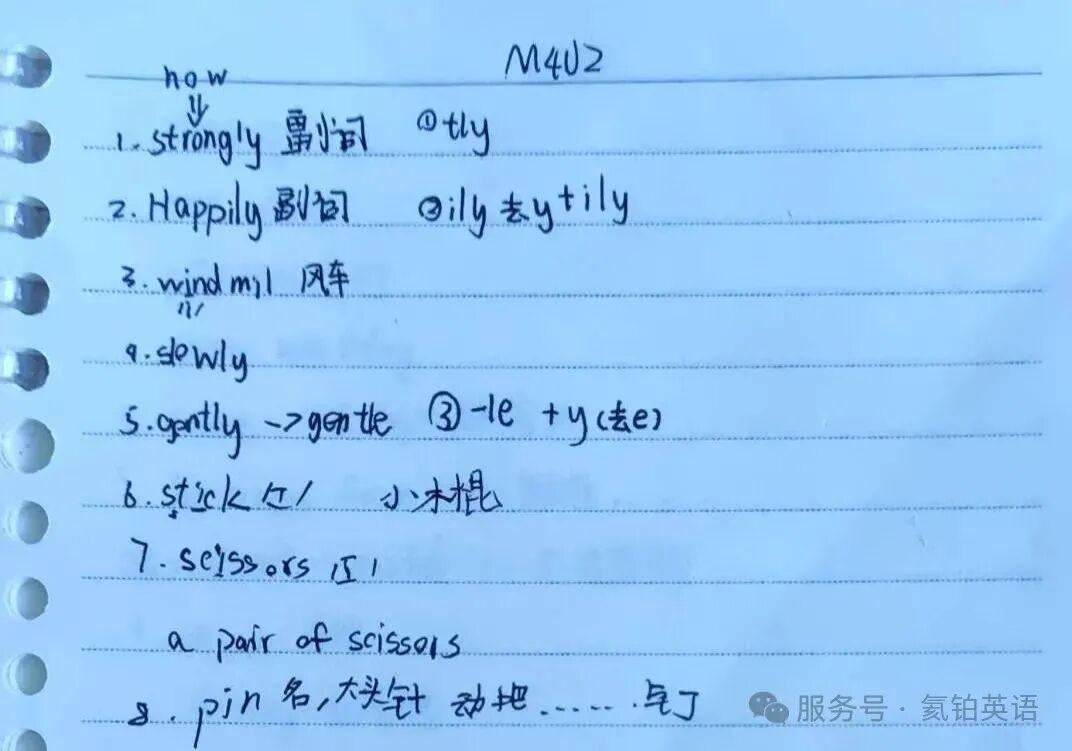 M4U2
how
⇓
1. strongly 副词 ①tly
2. Happily 副词 ②ily 去y+ily
3. windmil 风车
/ɪ/
4. slowly
5. gently -> gentle ③ -le +y(去e)
6. stick /ɪ/ 小木棍
7. scissors /ɪ/
a pair of scissors
8. pin 名,大头针 动把......
服务号·氦铂英语